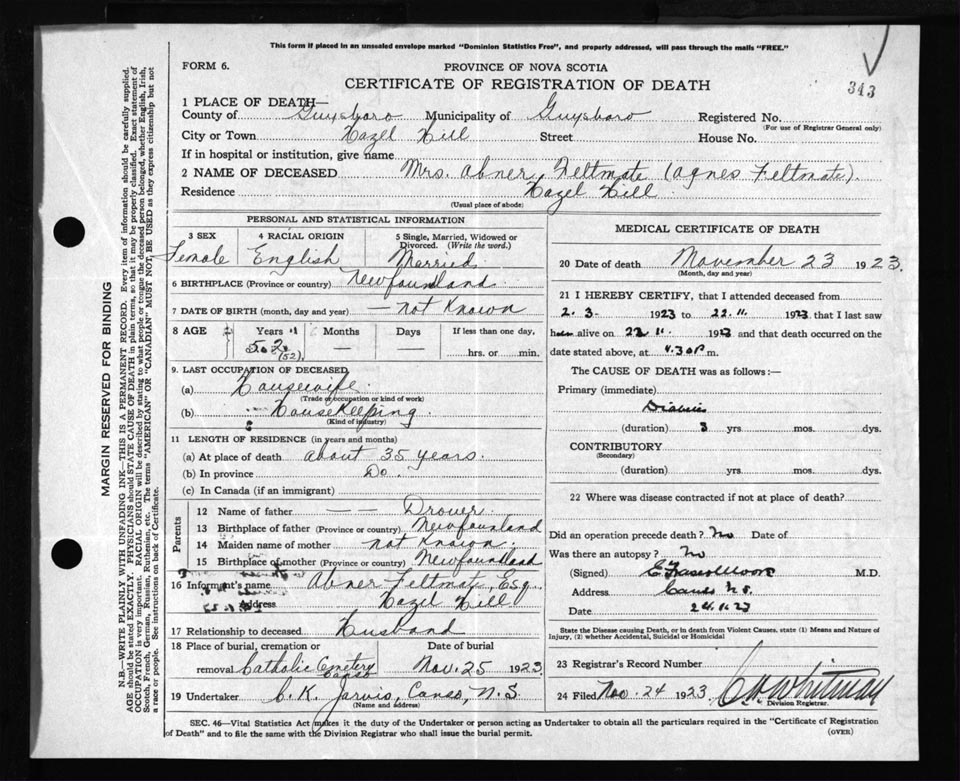 This form if placed in an unsealed envelope marked "Dominion Statistics Free", and properly addressed, will pass through the mails "FREE."
FORM 6.
PROVINCE OF NOVA SCOTIA
CERTIFICATE OF REGISTRATION OF DEATH
343
1 PLACE OF DEATH—
County of Guysboro Municipality of Guysboro Registered No.
(For use of Registrar General only)
City or Town Hazel Hill Street House No.
If in hospital or institution, give name
2 NAME OF DECEASED Mrs. Abner Feltmate (Agnes Feltmate).
Residence Hazel Hill
(Usual place of abode)
PERSONAL AND STATISTICAL INFORMATION
3 SEX 4 RACIAL ORIGIN 5 Single, Married, Widowed or Divorced. (Write the word.)
Female English Married
6 BIRTHPLACE (Province or country) Newfounland
7 DATE OF BIRTH (month, day and year) — not Known
8 AGE Years Months Days If less than one day,
52 (52) — — hrs. or min.
9. LAST OCCUPATION OF DECEASED
(a) Housewife.
(Trade or occupation or kind of work)
(b) HouseKeeping.
(Kind of industry)
11 LENGTH OF RESIDENCE (in years and months)
(a) At place of death about 35 years.
(b) In province Do.
(c) In Canada (if an immigrant)
Parents
12 Name of father — — Drover.
13 Birthplace of father (Province or country) Newfounland
14 Maiden name of mother not Known.
15 Birthplace of mother (Province or country) Newfounland
16 Informant's name Abner Feltmate, Esq.
Address Hazel Hill
17 Relationship to deceased Husband
18 Place of burial, cremation or removal Catholic Cemetery Canso Date of burial Nov. 25 1923
19 Undertaker C. K. Jarvis, Canso, N.S.
(Name and address)
MEDICAL CERTIFICATE OF DEATH
20 Date of death November 23 1923.
(Month, day and year)
21 I HEREBY CERTIFY, that I attended deceased from
2.3- 1923 to 22.11. 1923 that I last saw
her alive on 22 11. 1923 and that death occurred on the
date stated above, at 4.30 P m.
The CAUSE OF DEATH was as follows:—
Primary (immediate)
(duration) 3 yrs. mos. dys.
CONTRIBUTORY
(Secondary)
(duration) yrs. mos. dys.
22 Where was disease contracted if not at place of death?
Did an operation precede death? No Date of
Was there an autopsy? No
(Signed) M.D.
Address Canso N.S.
Date 24.11.23
State the Disease causing Death, or in death from Violent Causes, state (1) Means and Nature of Injury, (2) whether Accidental, Suicidal or Homicidal
23 Registrar's Record Number
24 Filed Nov. 24 1923 Whitman
Division Registrar.
SEC. 46—Vital Statistics Act makes it the duty of the Undertaker or person acting as Undertaker to obtain all the particulars required in the "Certificate of Registration of Death" and to file the same with the Division Registrar who shall issue the burial permit.
(OVER)
MARGIN RESERVED FOR BINDING
N.B.—WRITE PLAINLY WITH UNFADING INK—THIS IS A PERMANENT RECORD. Every item of information should be carefully supplied.
AGE should be stated EXACTLY. PHYSICIANS should STATE CAUSE OF DEATH in plain terms, so that it may be properly classified. Exact statement of
OCCUPATION is very important. RACIAL ORIGIN will be described by stating to what people or tongue the deceased person belonged, whether English, Irish,
Scotch, French, German, Russian, Ruthenian, etc. The terms "AMERICAN" OR "CANADIAN" MUST NOT BE USED as they express citizenship but not
a race or people. See instructions on back of Certificate.